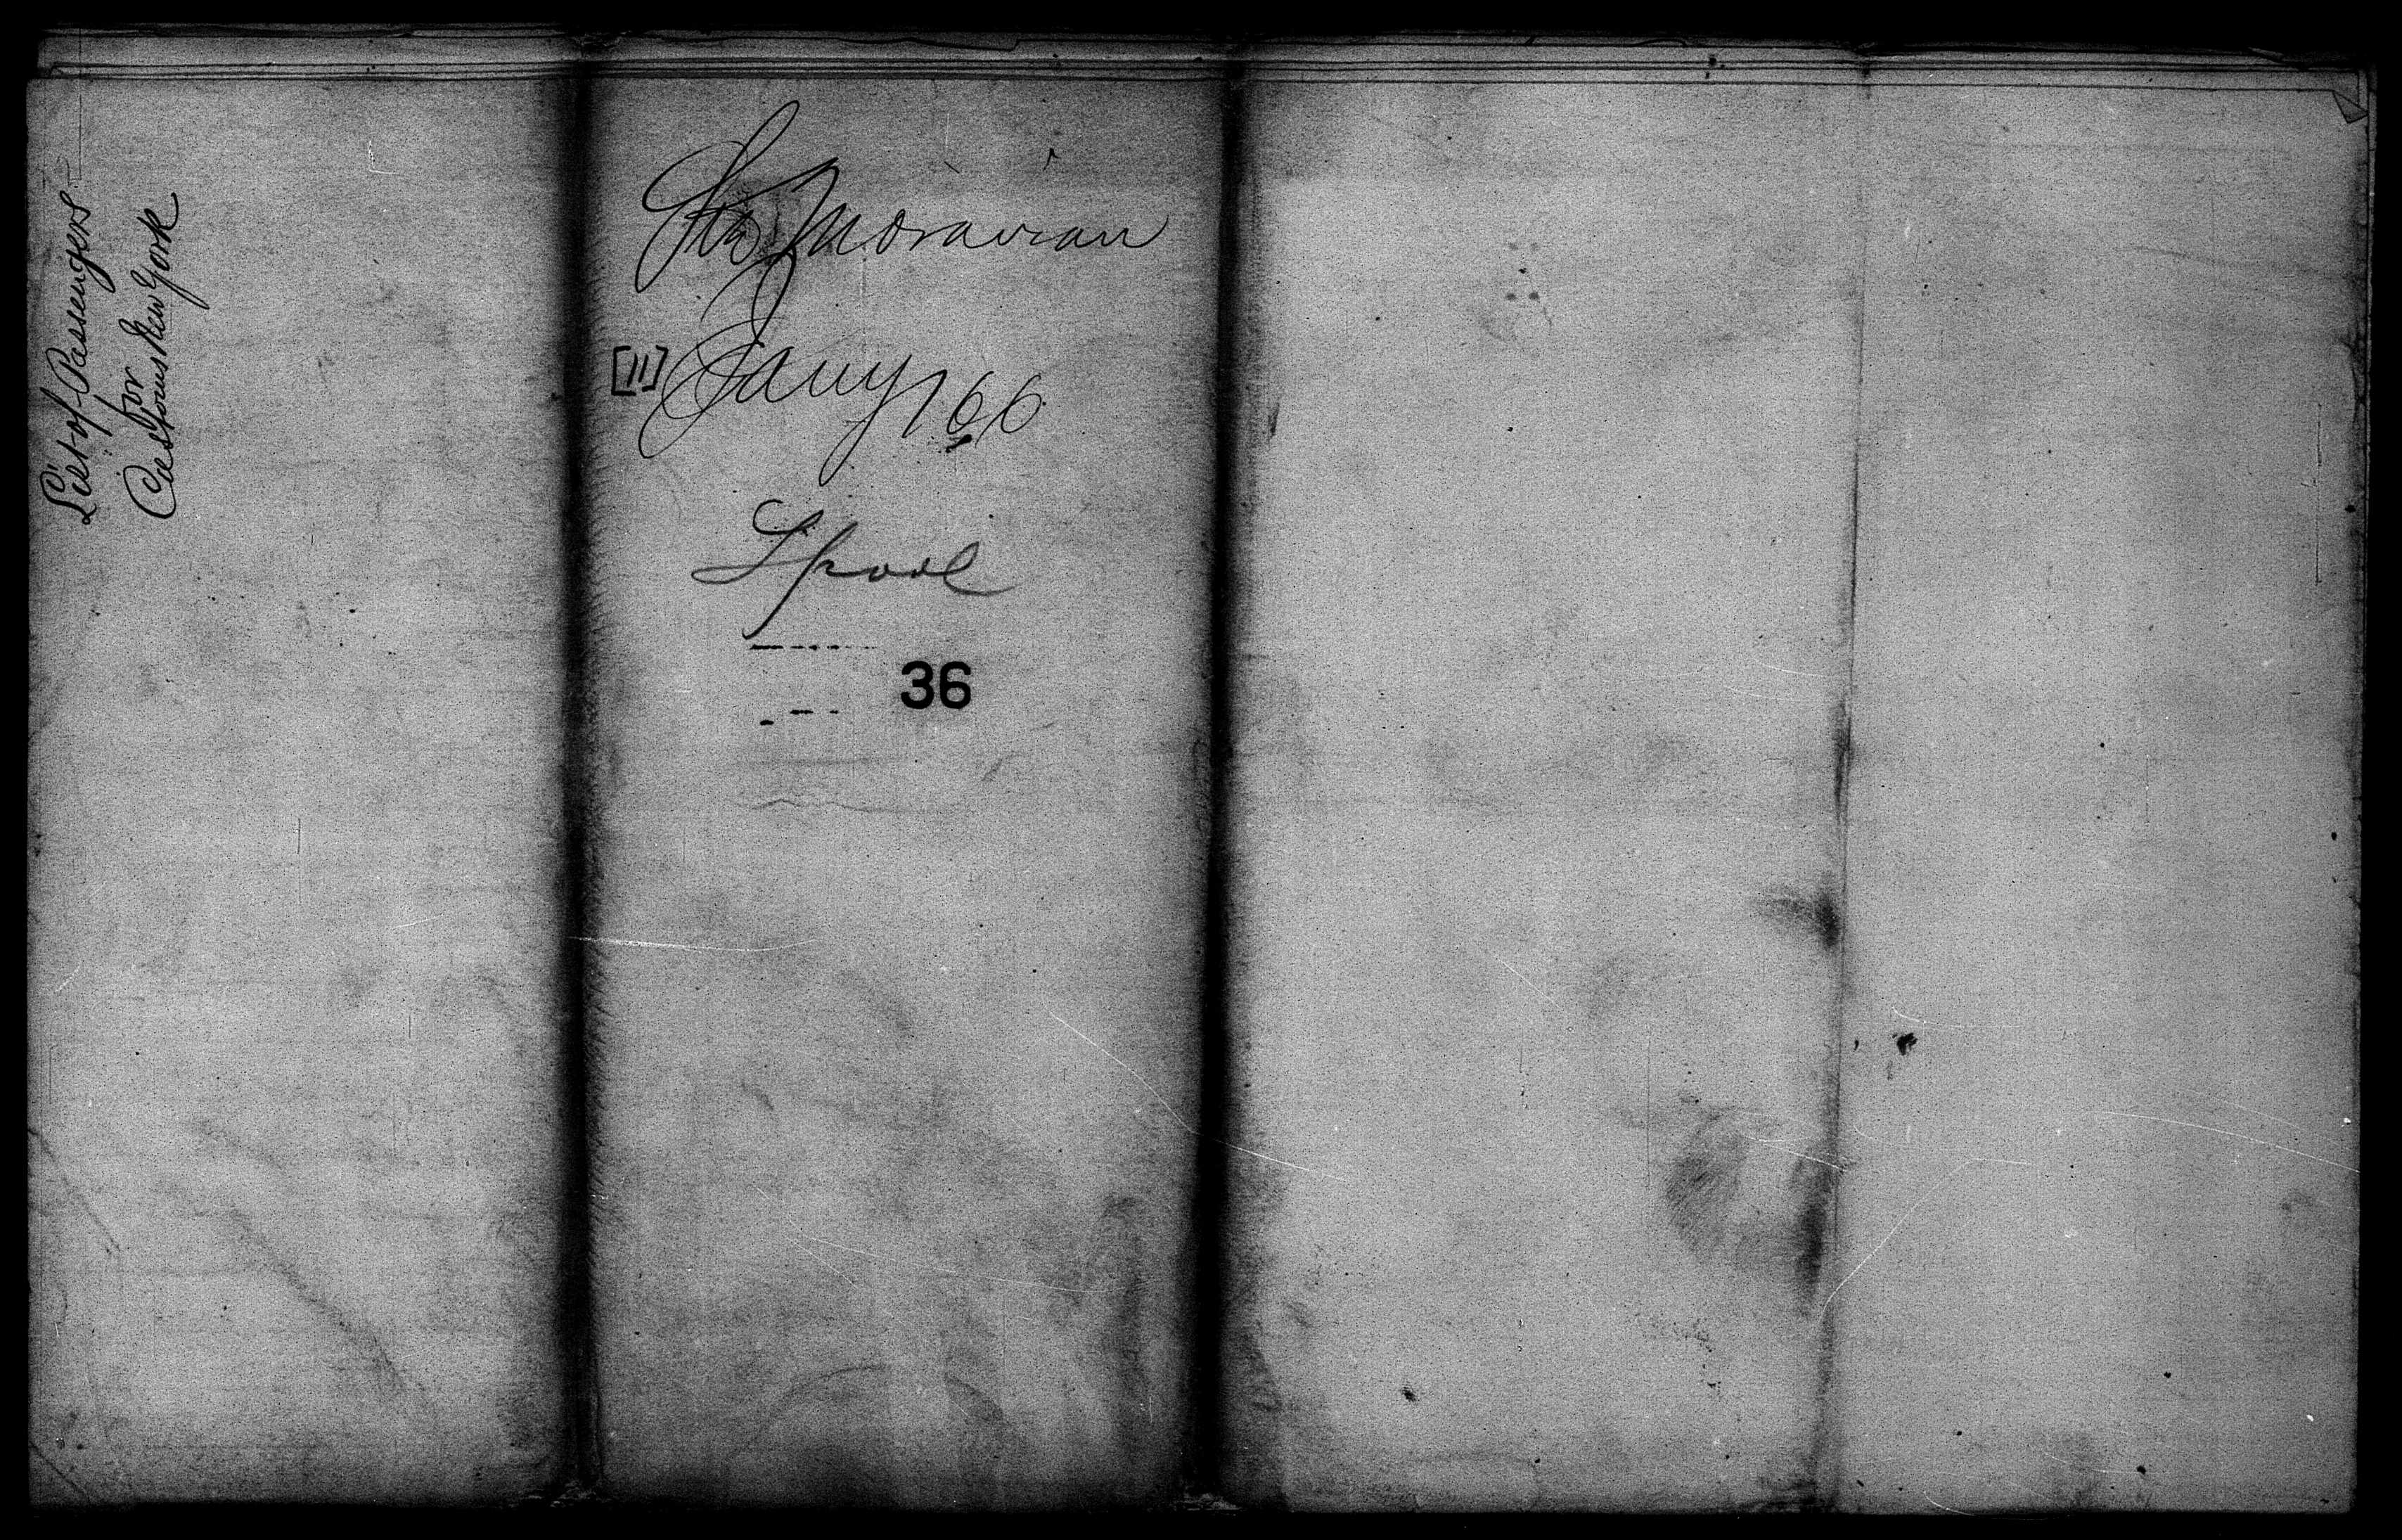 List of Passengers
for
Customs New York
Str Moravian
[11] Jany / 66
L'pool
36